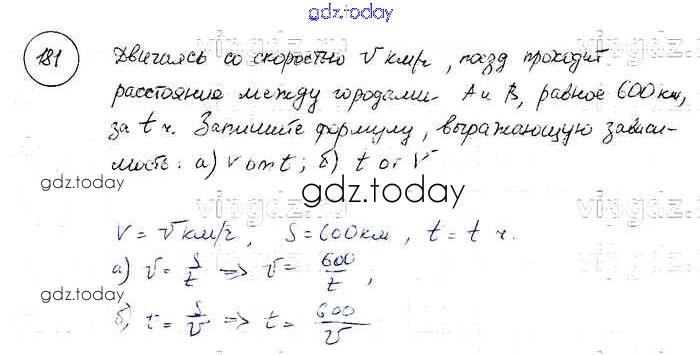 gdz.today
181 Двигаясь со скоростью v км/ч, поезд проходит
расстояние между городами A и B, равное 600 км,
за t ч. Запишите формулу, выражающую зависи-
мость: а) v от t; б) t от v
gdz.today
gdz.today
V = v км/ч, S = 600 км, t = t ч.
а) v = S/t => v = 600/t;
gdz.today
б) t = S/v => t = 600/v